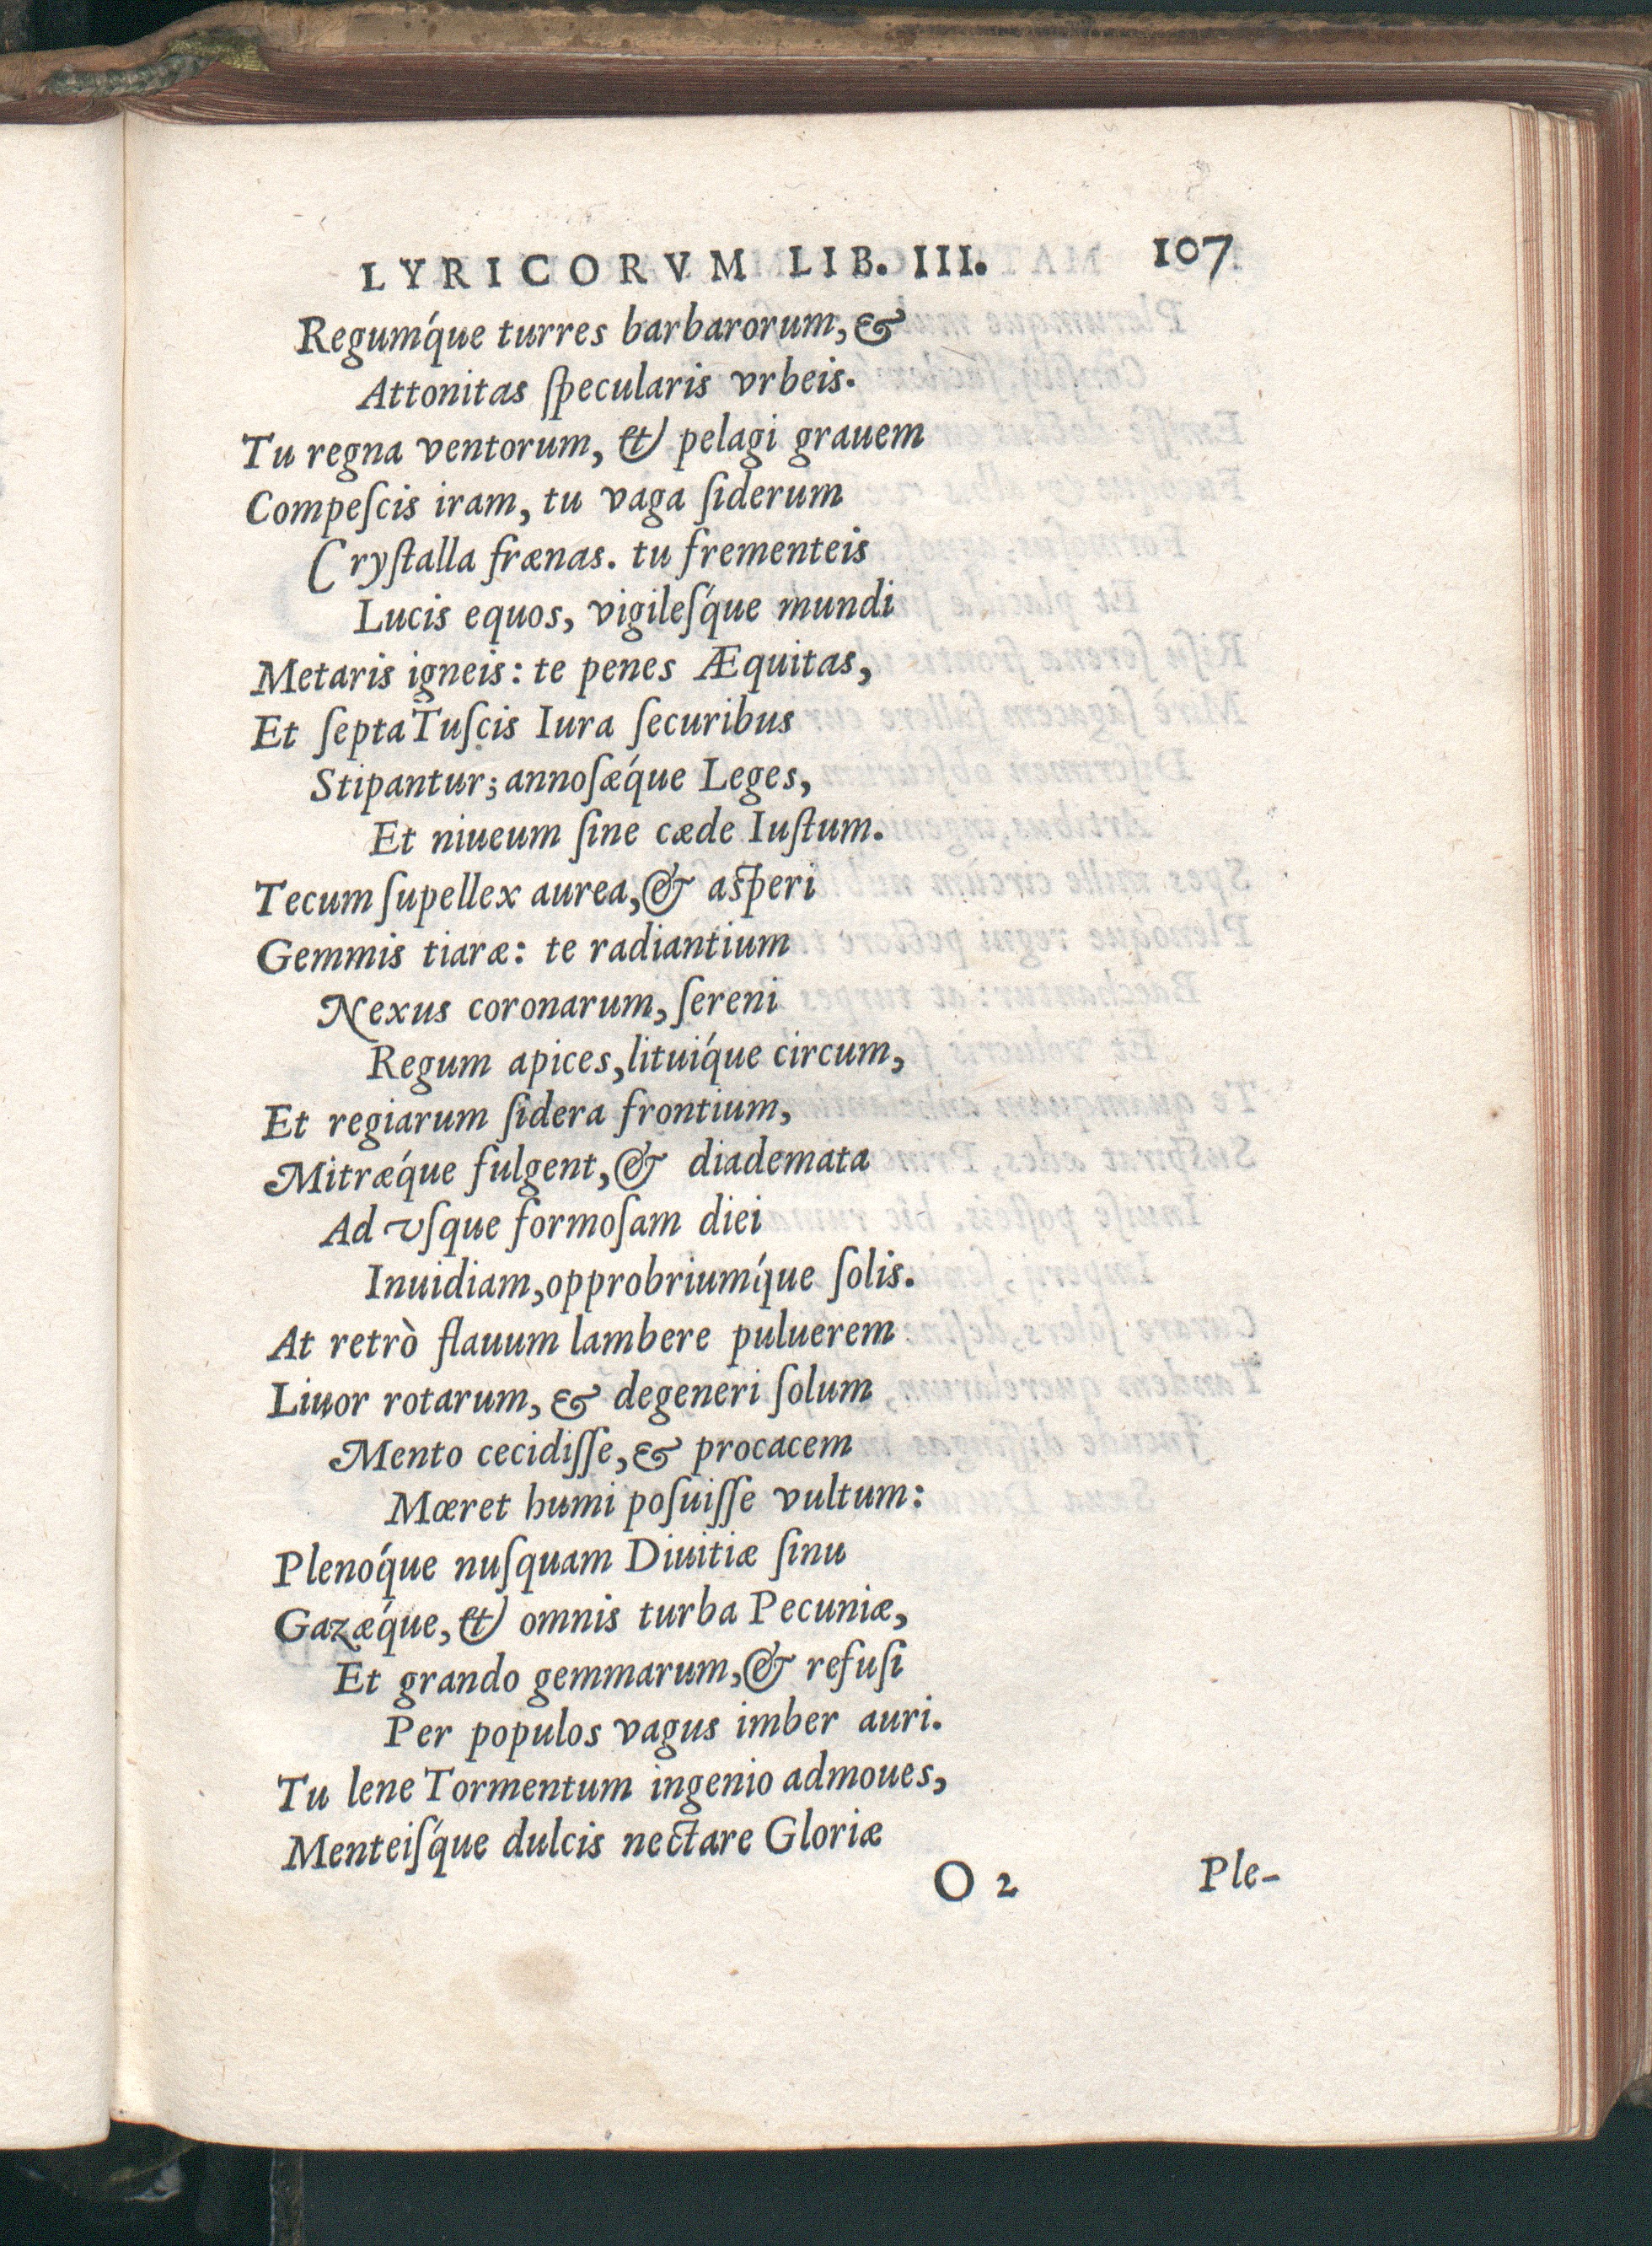 LYRICORVM LIB. III. 107
Regumq́ue turres barbarorum, &
Attonitas ſpecularis vrbeis.
Tu regna ventorum, & pelagi grauem
Compeſcis iram, tu vaga ſiderum
Cryſtalla frænas. tu frementeis
Lucis equos, vigileſq́ue mundi
Metaris igneis: te penes Æquitas,
Et ſepta Tuſcis Iura ſecuribus
Stipantur; annoſæq́ue Leges,
Et niueum ſine cæde Iuſtum.
Tecum ſupellex aurea, & aſperi
Gemmis tiaræ: te radiantium
Nexus coronarum, ſereni
Regum apices, lituiq́ue circum,
Et regiarum ſidera frontium,
Mitræq́ue fulgent, & diademata
Ad vſque formoſam diei
Inuidiam, opprobriumq́ue ſolis.
At retrò flauum lambere puluerem
Liuor rotarum, & degeneri ſolum
Mento cecidiſſe, & procacem
Mœret humi poſuiſſe vultum:
Plenoq́ue nuſquam Diuitiæ ſinu
Gazæq́ue, & omnis turba Pecuniæ,
Et grando gemmarum, & refuſi
Per populos vagus imber auri.
Tu lene Tormentum ingenio admoues,
Menteiſq́ue dulcis nectare Gloriæ
O 2 Ple-